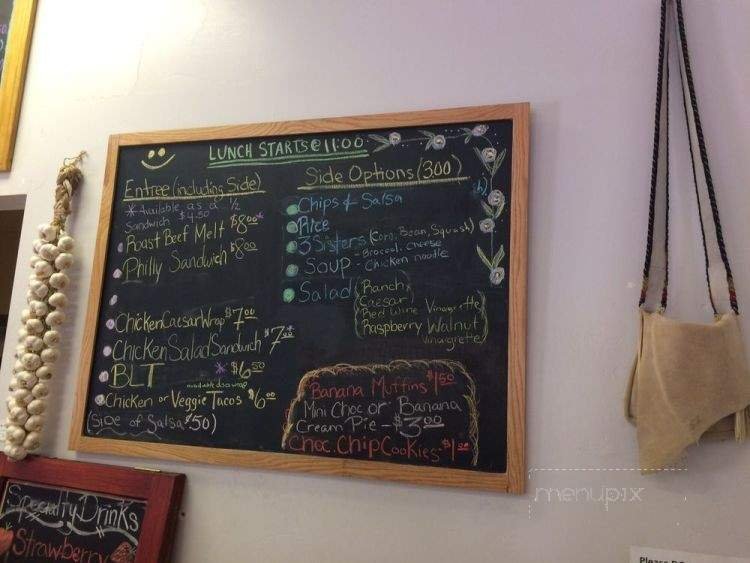 LUNCH STARTS @ 11:00
Entree (including Side)
*Available as a 1/2
Sandwich $4.50
Roast Beef Melt $8.00*
Philly Sandwich $8.00
Chicken Caesar Wrap $7.00
Chicken Salad Sandwich $7.00*
BLT *$6.50
available as a wrap
Chicken or Veggie Tacos $6.00
(Side of Salsa $.50)
Side Options (3.00)
Chips & Salsa
Rice
3 Sisters (Corn, Bean, Squash)
Soup - Broccoli Cheese
- Chicken noodle
Salad (Ranch
Caesar
Red Wine Vinaigrette
Raspberry Walnut
Vinaigrette)
Banana Muffins $1.50
Mini Choc or Banana
Cream Pie - $3.00
Choc. Chip Cookies - $1.00
Specialty Drinks
Strawberry
menupix
Please